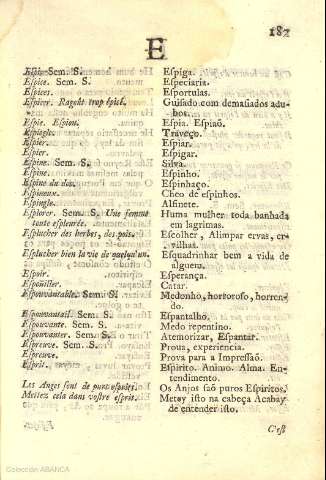 E
182
Espi. Sem. S. Espiga.
Espice. Sem. S. Especiaria.
Espices. Esportulas.
Espicer. Ragoût trop épicé. Guisado com demasiados adu-
bos.
Espie. Espion. Espia. Espiaõ.
Espiegle. Traveço.
Espier. Espiar.
Espier. Espigar.
Espine. Sem. S. Silva.
Espine. Espinho.
Espine du dos. Espinhaço.
Espineux. Cheo de espinhos.
Espingle. Alfinete.
Esplorer. Sem. S. Une femme Huma mulher toda banhada
toute esplorée. em lagrimas.
Esplucher des herbes, des pois. Escolher, Alimpar ervas, er-
vilhas.
Esplucher bien la vie de quelqu'un. Esquadrinhar bem a vida de
alguem.
Espoir. Esperança.
Espoüiller. Catar.
Espouvantable. Sem. S. Medonho, hortoroso, horren-
do.
Espouvantail. Sem. S. Espantalho.
Espouvante. Sem. S. Medo repentino.
Espouvanter. Sem. S. Atemorizar, Espantar.
Espreuve. Sem. S. Prova, experiencia.
Espreuve. Prova para a Impressaõ.
Esprit. Espirito. Animo. Alma. En-
tendimento.
Les Anges sont de purs esprits. Os Anjos saõ puros Espiritos.
Mettez cela dans vostre esprit. Metey isto na cabeça Acabay
de entender isto.
C'est
Colección ABANCA